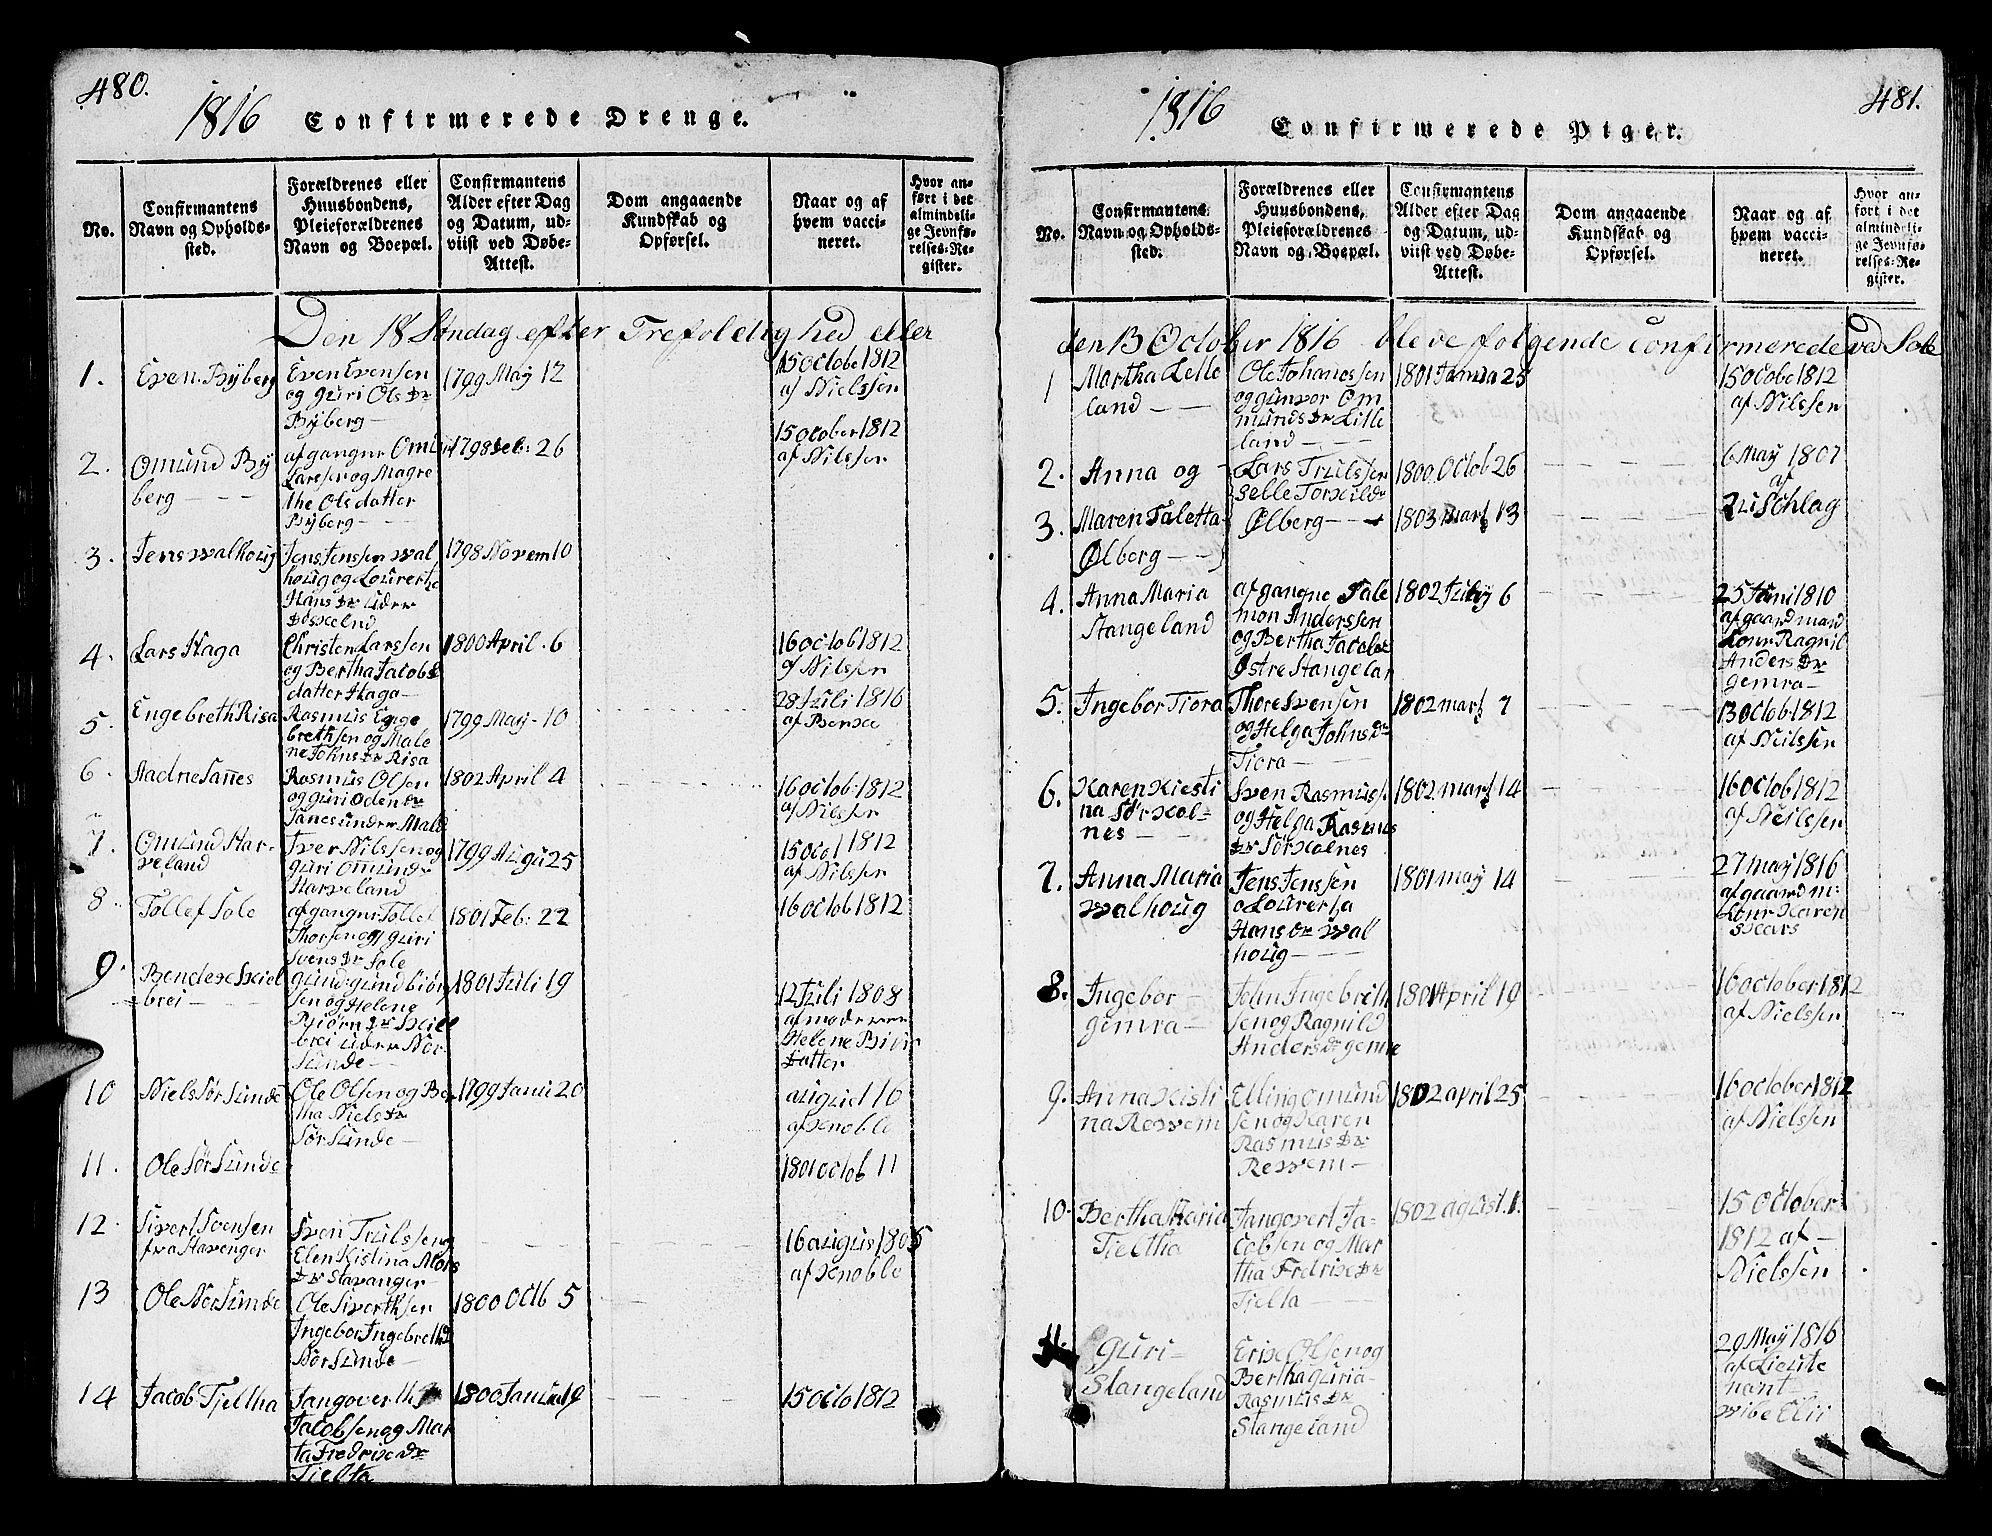 480.
1816 Confirmerede Drenge.
No.
Confirmantens
Navn og Opholds-
sted.
Forældrenes eller
Huusbondens,
Pleieforældrenes
Navn og Boepæl.
Confirmantens
Alder efter Dag
og Datum, ud-
viist ved Døbe-
Attest.
Dom angaaende
Kundskab og
Opførsel.
Naar og af
hvem vacci-
neret.
Hvor an-
ført i det
almindeli-
ge Jevnfø-
relses-Re-
gister.
Den 18 Søndag efter Trefoldighed eller
1.
Even Byberg
Even Evensen
og Guri Ols Dr
Byberg
1799 May 12
15 Octobe 1812
af Nielssen
2.
Omund By
berg
afgangne Omund
Larssen og Magre
the Olsdatter
Byberg
1798 Feb: 26
15 October 1812
af Nilssen
3.
Jens Walhoug
Jens Jenssen Wal
houg og Lourentse
Hans Dr under
1798 Novem 10
4.
Lars Haga
Christen Larssen
og Bertha Jacobs
datter Haga
1800 April 6
16 Octob 1812
af Nilssen
5.
Engebreth Risa
Rasmus Enge
brethsen og Male
ne Johns Dr Risa
1799 May 10
28 Juli 1816
6.
Aadne Sannes
Rasmus Olsen
og Guri Oden Dr
Sanes under Mald
1802 April 4
16 octob: 1812
af Nilssen
7.
Omund Har-
veland
Iver Nilssen og
Guri Omunds
Harveland
1799 Augu 25
15 Oct 1812
af Nilssen
8.
Tollef Sole
afgangne Tollef
Thorsen og Guri
Svens Dr Sole
1801 Feb: 22
16 octob 1812
9.
Bendex Skiel
brei
gund: gundbiørn
sen og Helene
Biørn Dr Skiel
brei under Nor-
Sunde
1801 Juli 19
12 Juli 1808
af moderen
Helene Biørn
Datter
10
Niels Sør Sunde
Ole Olsen og Ber
tha Niels Dr
Sør Sunde
1799 Janu 20
af Knoble
11.
Ole Sør Sunde
1801 octob 11
12.
Sivert Svensen
fra Stavenger
Sven Truilssen og
Elen Kistina
Dr Stavanger
16 augus 1805
af Knoble
13
Ole Nor Sunde
Ole Siverthsen
Ingebor Ingebreth D
Nor Sunde
1800 Octb 5
14
Jacob Tjeltha
Jangoverth
Jacobsen og Mar
ta Fredrixe Dr
Tjelta
1800 Janua 19
15 Octo 1812
481.
1816 Confirmerede Piger.
No.
Confirmantens
Navn og Opholds-
sted.
Forældrenes eller
Huusbondens,
Pleieforældrenes
Navn og Boepæl.
Confirmantens
Alder efter Dag
og Datum, ud-
viist ved Døbe-
Attest.
Dom angaaende
Kundskab og
Opførsel.
Naar og af
hvem vacci-
neret.
Hvor an-
ført i det
almindeli-
ge Jevnfø-
relses-Re-
gister.
den 13 October 1816 bleve følgende confirmerede ved Sole
1
Martha Lelle
land
Ole Johanessen
og Gunvor Om
munds Dr Lille
land
1801 Janua 25
15 Octobe 1812
af Nilssen
2.
Anna og
Lars Truilssen
Selle Torkilds
1800 Octob 26
6 May 1807
af
Zuschlag
3.
Maren Taletta
Ølberg
Ølberg
1803 Mart 13
4.
Anna Maria
Stangeland
afgangne Sale
mon Anderssen
og Bertha Jacobs
Østre Stangelan
1802 July 6
25 Juni 1810
af gaardmand
Kone Ragnil
Anders Dr
gemra
5.
Ingebor Tiora
Thore Svensen
og Helga Johns Dr
Tiora
1802 mart 7
13 Octob 1812
af Neilssen
6.
Karen Kiesti
na Sør Kol-
nes
Sven Rasmuss
og Helga Rasmus
Dr Sør Kolnes
1802 mart 14
16 Octob 1812
af Neilssen
7.
Anna Maria
Walhoug
Jens Jenssen
o Lourensa
Hans Dr Wal
houg
1801 may 14
27 may 1816
af gaard m:
Kone Karen
8.
Ingebor
gemra
John Ingebreth
sen og Ragnild
Anders Dr gemre
1801 April 19
16 October 1812
af Nielssen
9.
Anna Kisti
na Rexvem
Elling Omund
sen og Karen
Rasmus Dr
Rexvem
1802 april 25
16 october 1812
af Nielssen
10.
Bertha Maria
Tjeltha
Jangovert Ja-
cobsen og Mar
tha Fredrixe Dr
Tjelta
1802 agust. 1.
15 October
1812 af
Nielssen
11.
Guri
Stangeland
Erik Olsen og
Bertha Guria
Rasmus Dr
Stangeland
29 May 1816
af Lieute
nant
Wibe Elii